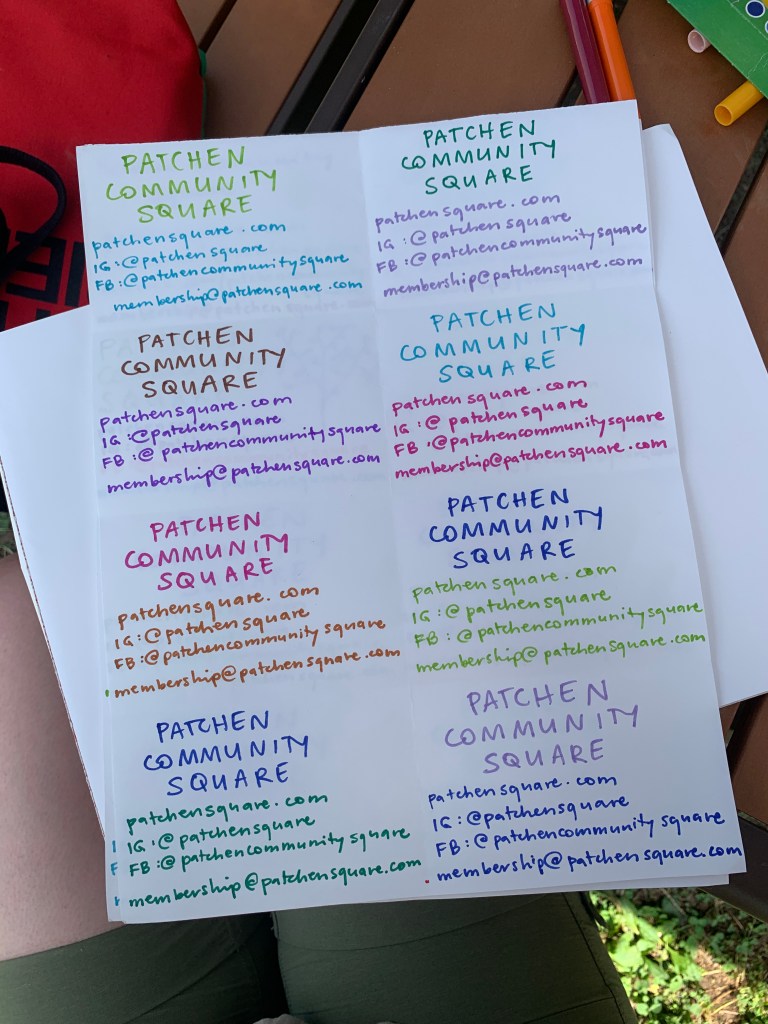 PATCHEN
COMMUNITY
SQUARE
patchensquare.com
IG:@patchensquare
FB:@patchencommunitysquare
membership@patchensquare.com
PATCHEN
COMMUNITY
SQUARE
patchensquare.com
IG:@patchensquare
FB:@patchencommunitysquare
membership@patchensquare.com
PATCHEN
COMMUNITY
SQUARE
patchensquare.com
IG:@patchensquare
FB:@patchencommunitysquare
membership@patchensquare.com
PATCHEN
COMMUNITY
SQUARE
patchensquare.com
IG:@patchensquare
FB:@patchencommunitysquare
membership@patchensquare.com
PATCHEN
COMMUNITY
SQUARE
patchensquare.com
IG:@patchensquare
FB:@patchencommunitysquare
membership@patchensquare.com
PATCHEN
COMMUNITY
SQUARE
patchensquare.com
IG:@patchensquare
FB:@patchencommunitysquare
membership@patchensquare.com
PATCHEN
COMMUNITY
SQUARE
patchensquare.com
IG:@patchensquare
FB:@patchencommunitysquare
membership@patchensquare.com
PATCHEN
COMMUNITY
SQUARE
patchensquare.com
IG:@patchensquare
FB:@patchencommunitysquare
membership@patchensquare.com